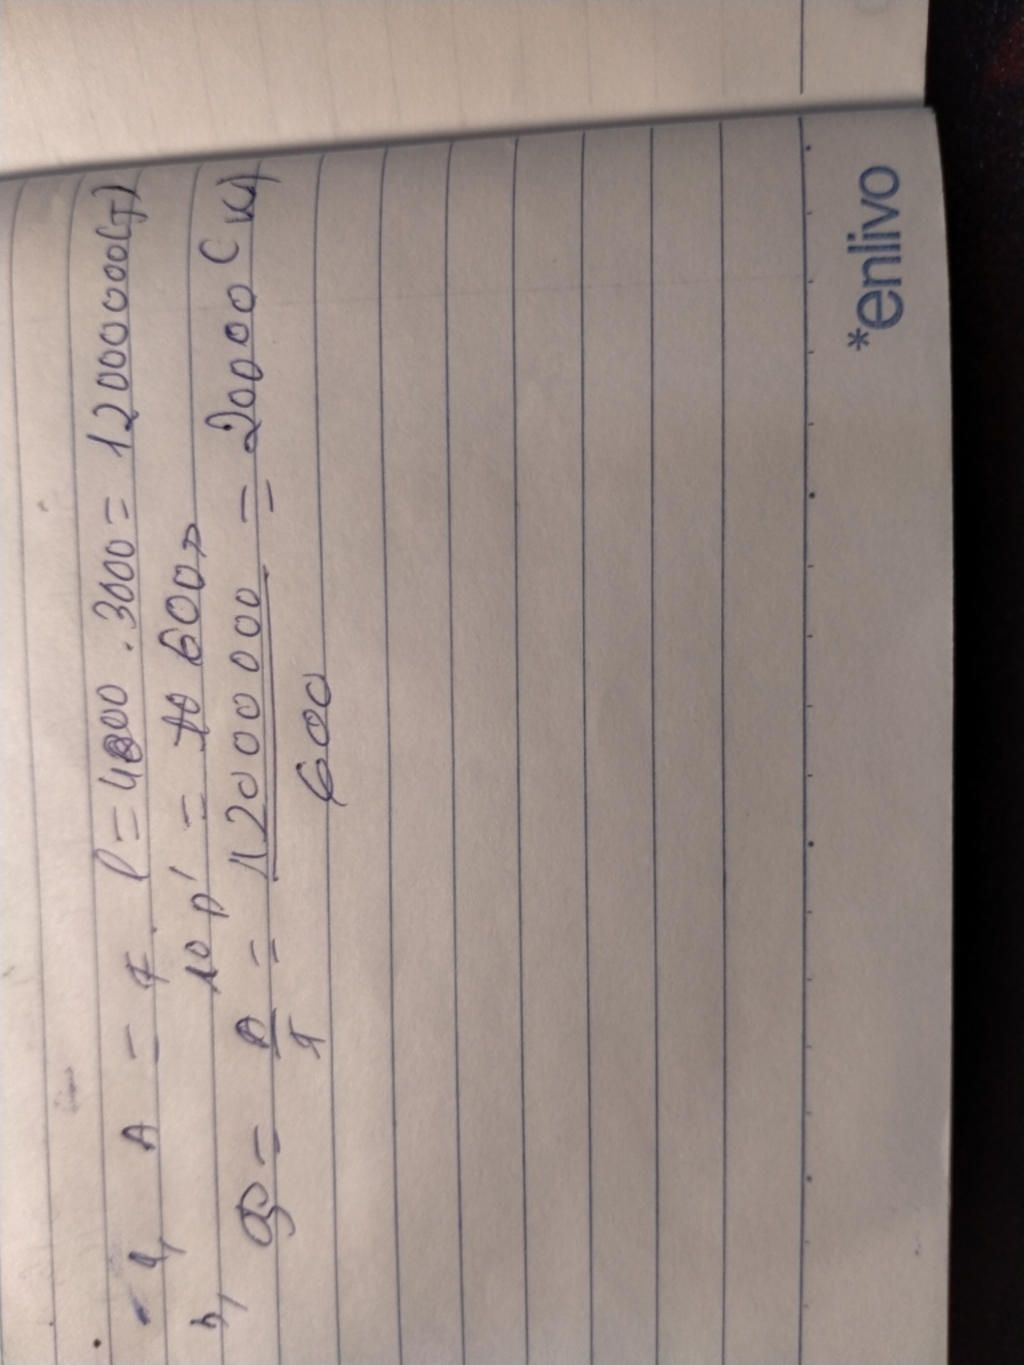 a, A = F. P = 4000 . 3000 = 12000000(J)
10 p' = 600s
b, P = A = 12000000 = 20000 (W)
T 600
*enlivo